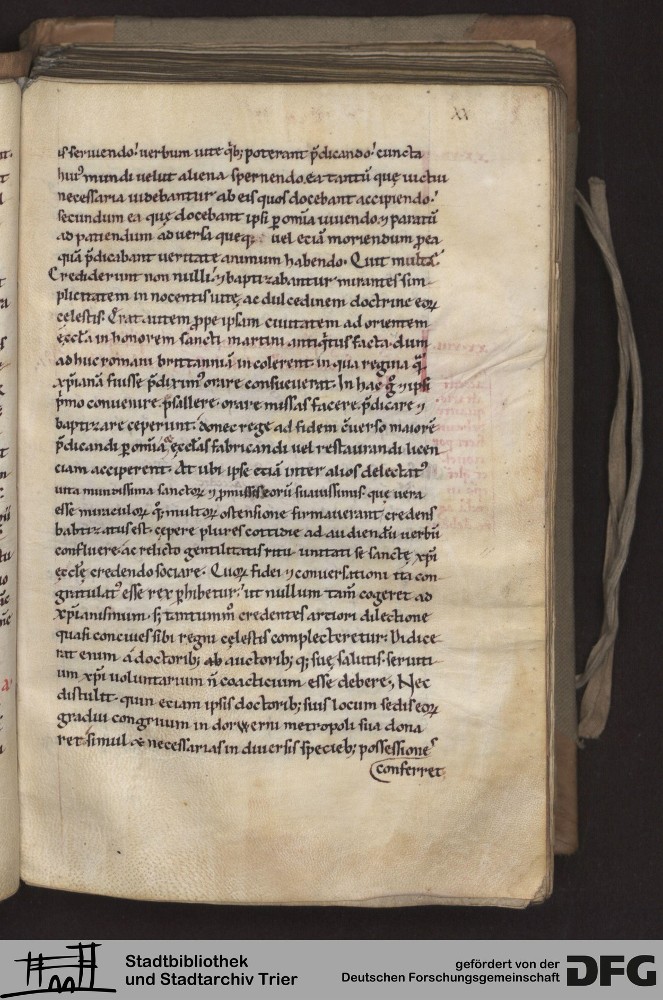 XX
is seruiendo. uerbum uite qb; poterant p̄dicando. cuncta
hui᷒ mundi uelut aliena spernendo. ea tantū quę uictui
necessaria uidebantur ab eis quos docebant accipiendo.
secundum ea quę docebant ipsi ꝑ omīa uiuendo. ⁊ paratū
ad patiendum aduersa queq; uel eciā moriendum ꝓ ea
quā p̄dicabant ueritate animum habendo. Quit multa.
Crediderunt non nulli. ⁊ baptizabantur mirantes sim-
plicitatem innocentis uitę, ac dulcedinem doctrine eoꝝ
celestis. Erat autem ꝓpe ipsam ciuitatem ad orientem
ęcclā in honorem sancti martini antiq̇tus facta dum
adhuc romani brittanniā incolerent. in qua regina q̄
xp̄ianā fuisse p̄dixim᷒ orare consueuerat. In hac ḡ ⁊ ipsi
p̄mo conuenire. psallere. orare missas facere. p̄dicare ⁊
baptizare ceperunt. donec rege ad fidem c̄uerso maiorē
p̄dicandi ꝑ omīa ⁊ ęcclas fabricandi uel restaurandi licen
ciam acciperent. At ubi ipse eciā inter alios delectat᷒
uita mundissima sanctoꝝ ⁊ ꝓmissis eorū suauissimis. quę uera
esse miraculoꝝ q; multoꝝ ostensione firmauerant credens
babtizatus est. cępere plures cottidie ad audiendū uerbū
confluere. ac relicto gentilitatis ritu unitati se sanctę xp̄i
ęcclę credendo sociare. Quoꝝ fidei ⁊ conuersationi ita con-
gratulat᷒ esse rex ꝑhibetur. ut nullum tam̄ cogeret ad
xp̄ianismum. s; tantum̄m credentes artiori dilectione
quasi conciues sibi regni cęlestis complecteretur. Didice
rat enim a doctorib; ab auctorib; q; suę salutis. seruiti-
um xp̄i uoluntarium n̄ coacticium esse debere. Nec
distulit. quin eciam ipsis doctorib; suis locum sedis eoꝝ
gradui congruum in dorwerni metropoli sua dona
ret. simul ⁊ necessarias in diuersis specieb; possessiones
conferret.
Stadtbibliothek
und Stadtarchiv Trier
gefördert von der
Deutschen Forschungsgemeinschaft
DFG